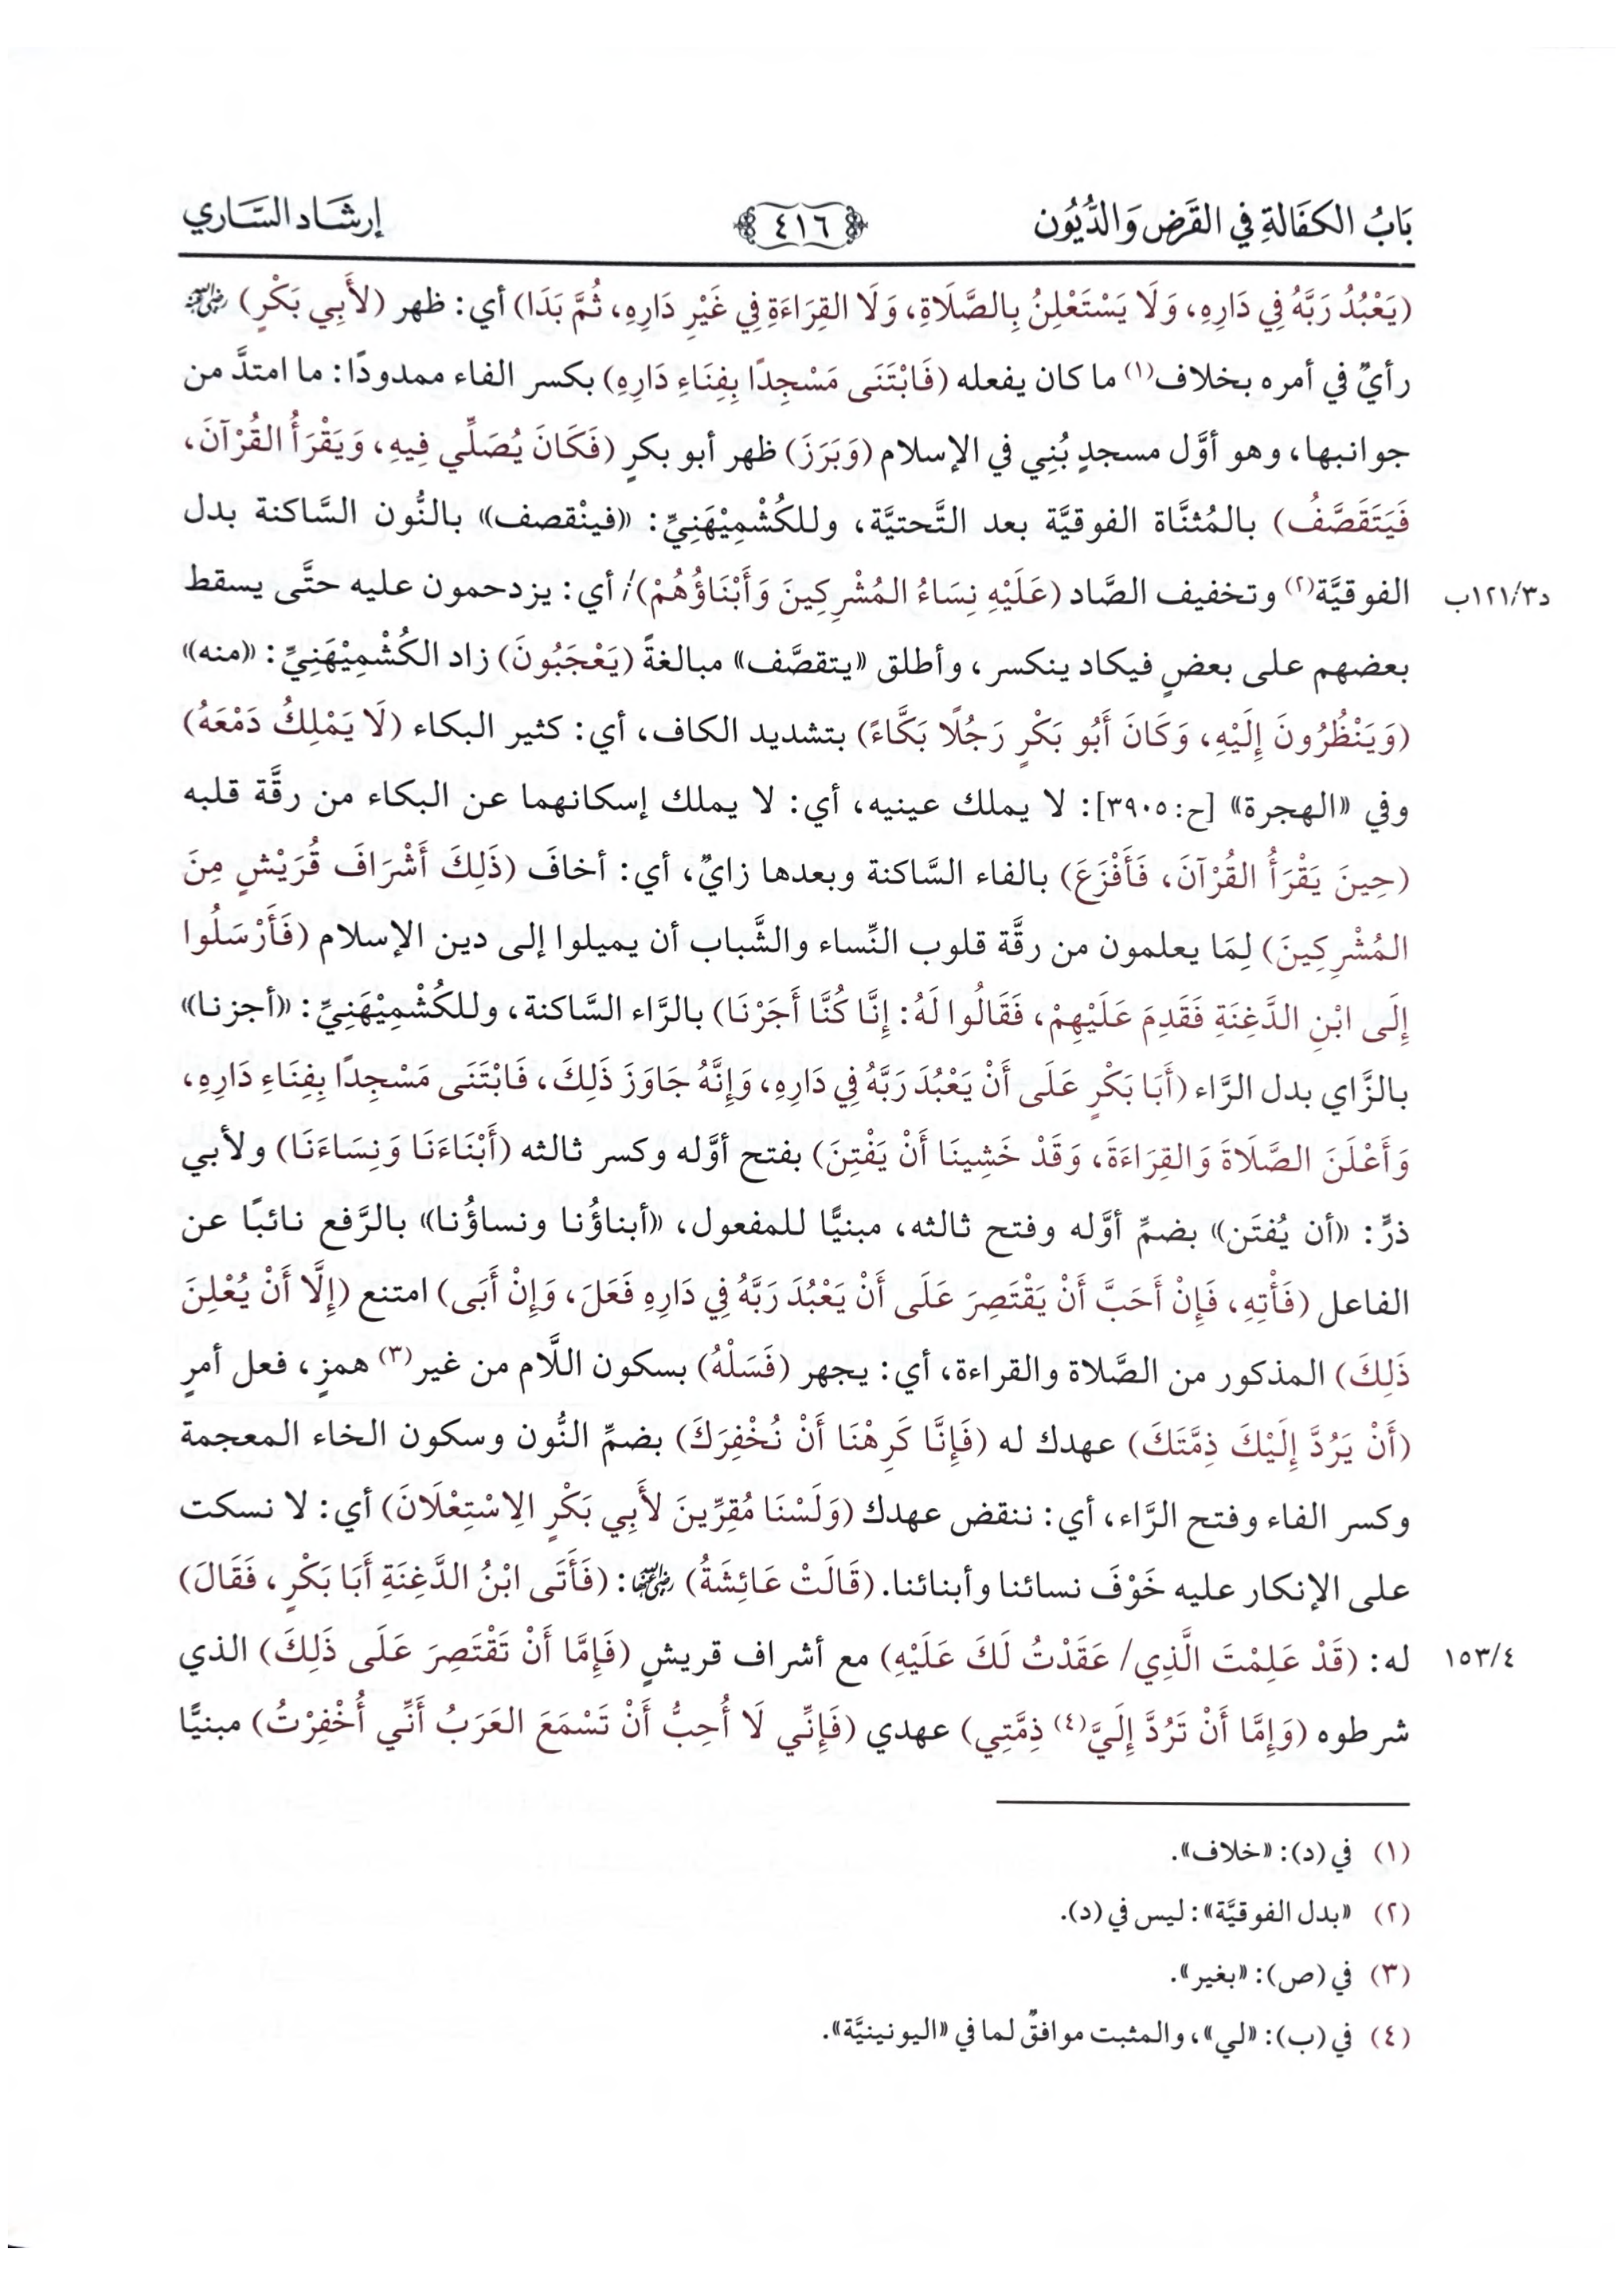 بَابُ الكفَالَةِ فِي القَرَضِ وَالدُّيُون
٤١٦
إرشَاد السَّاري
(يَعْبُدُ رَبَّهُ فِي دَارِهِ، وَلَا يَسْتَعْلِنُ بِالصَّلَاةِ، وَلَا القِرَاءَةِ فِي غَيْرِ دَارِهِ، ثُمَّ بَدَا) أي: ظهر (لأَبِي بَكْرٍ) رضي الله عنه
رأيٌ في أمره بخلاف(١) ما كان يفعله (فَابْتَنَى مَسْجِدًا بِفِنَاءِ دَارِهِ) بكسر الفاء ممدودًا: ما امتدَّ من
جوانبها، وهو أوَّل مسجدٍ بُنِي في الإسلام (وَبَرَزَ) ظهر أبو بكرٍ (فَكَانَ يُصَلِّي فِيهِ، وَيَقْرَأُ القُرْآنَ،
فَيَتَقَصَّفُ) بالمُثنَّاة الفوقيَّة بعد التَّحتيَّة، وللكُشْمِيْهَنِيِّ: «فينْقصف» بالنُّون السَّاكنة بدل
الفوقيَّة(٢) وتخفيف الصَّاد (عَلَيْهِ نِسَاءُ المُشْرِكِينَ وَأَبْنَاؤُهُمْ)/ أي: يزدحمون عليه حتَّى يسقط
د١٢١/٣ب
بعضهم على بعضٍ فيكاد ينكسر، وأطلق «يتقصَّف» مبالغةً (يَعْجَبُونَ) زاد الكُشْمِيْهَنِيِّ: «منه»
(وَيَنْظُرُونَ إِلَيْهِ، وَكَانَ أَبُو بَكْرٍ رَجُلًا بَكَّاءً) بتشديد الكاف، أي: كثير البكاء (لَا يَمْلِكُ دَمْعَهُ)
وفي «الهجرة» [ح:٣٩٠٥]: لا يملك عينيه، أي: لا يملك إسكانهما عن البكاء من رقَّة قلبه
(حِينَ يَقْرَأُ القُرْآنَ، فَأَفْزَعَ) بالفاء السَّاكنة وبعدها زايٌ، أي: أخافَ (ذَلِكَ أَشْرَافَ قُرَيْشٍ مِنَ
المُشْرِكِينَ) لِمَا يعلمون من رقَّة قلوب النِّساء والشَّباب أن يميلوا إلى دين الإسلام (فَأَرْسَلُوا
إِلَى ابْنِ الدَّغِنَةِ فَقَدِمَ عَلَيْهِمْ، فَقَالُوا لَهُ: إِنَّا كُنَّا أَجَرْنَا) بالرَّاء السَّاكنة، وللكُشْمِيْهَنِيِّ: «أجزنا»
بالزَّاي بدل الرَّاء (أَبَا بَكْرٍ عَلَى أَنْ يَعْبُدَ رَبَّهُ فِي دَارِهِ، وَإِنَّهُ جَاوَزَ ذَلِكَ، فَابْتَنَى مَسْجِدًا بِفِنَاءِ دَارِهِ،
وَأَعْلَنَ الصَّلَاةَ وَالقِرَاءَةَ، وَقَدْ خَشِينَا أَنْ يَفْتِنَ) بفتح أوَّله وكسر ثالثه (أَبْنَاءَنَا وَنِسَاءَنَا) ولأبي
ذرٍّ: «أن يُفتَن» بضمِّ أوَّله وفتح ثالثه، مبنيًّا للمفعول، «أبناؤُنا ونساؤُنا» بالرَّفع نائبًا عن
الفاعل (فَأْتِهِ، فَإِنْ أَحَبَّ أَنْ يَقْتَصِرَ عَلَى أَنْ يَعْبُدَ رَبَّهُ فِي دَارِهِ فَعَلَ، وَإِنْ أَبَى) امتنع (إِلَّا أَنْ يُعْلِنَ
ذَلِكَ) المذكور من الصَّلاة والقراءة، أي: يجهر (فَسَلْهُ) بسكون اللَّام من غير(٣) همزٍ، فعل أمرٍ
(أَنْ يَرُدَّ إِلَيْكَ ذِمَّتَكَ) عهدك له (فَإِنَّا كَرِهْنَا أَنْ نُخْفِرَكَ) بضمِّ النُّون وسكون الخاء المعجمة
وكسر الفاء وفتح الرَّاء، أي: ننقض عهدك (وَلَسْنَا مُقِرِّينَ لأَبِي بَكْرٍ الِاسْتِعْلَانَ) أي: لا نسكت
على الإنكار عليه خَوْفَ نسائنا وأبنائنا. (قَالَتْ عَائِشَةُ) رضي الله عنها: (فَأَتَى ابْنُ الدَّغِنَةِ أَبَا بَكْرٍ، فَقَالَ)
له: (قَدْ عَلِمْتَ الَّذِي/ عَقَدْتُ لَكَ عَلَيْهِ) مع أشراف قريشٍ (فَإِمَّا أَنْ تَقْتَصِرَ عَلَى ذَلِكَ) الذي
١٥٣/٤
شرطوه (وَإِمَّا أَنْ تَرُدَّ إِلَيَّ(٤) ذِمَّتِي) عهدي (فَإِنِّي لَا أُحِبُّ أَنْ تَسْمَعَ العَرَبُ أَنِّي أُخْفِرْتُ) مبنيًّا
(١) في (د): «خلاف».
(٢) «بدل الفوقيَّة»: ليس في (د).
(٣) في (ص): «بغير».
(٤) في (ب): «لي»، والمثبت موافقٌ لما في «اليونينيَّة».